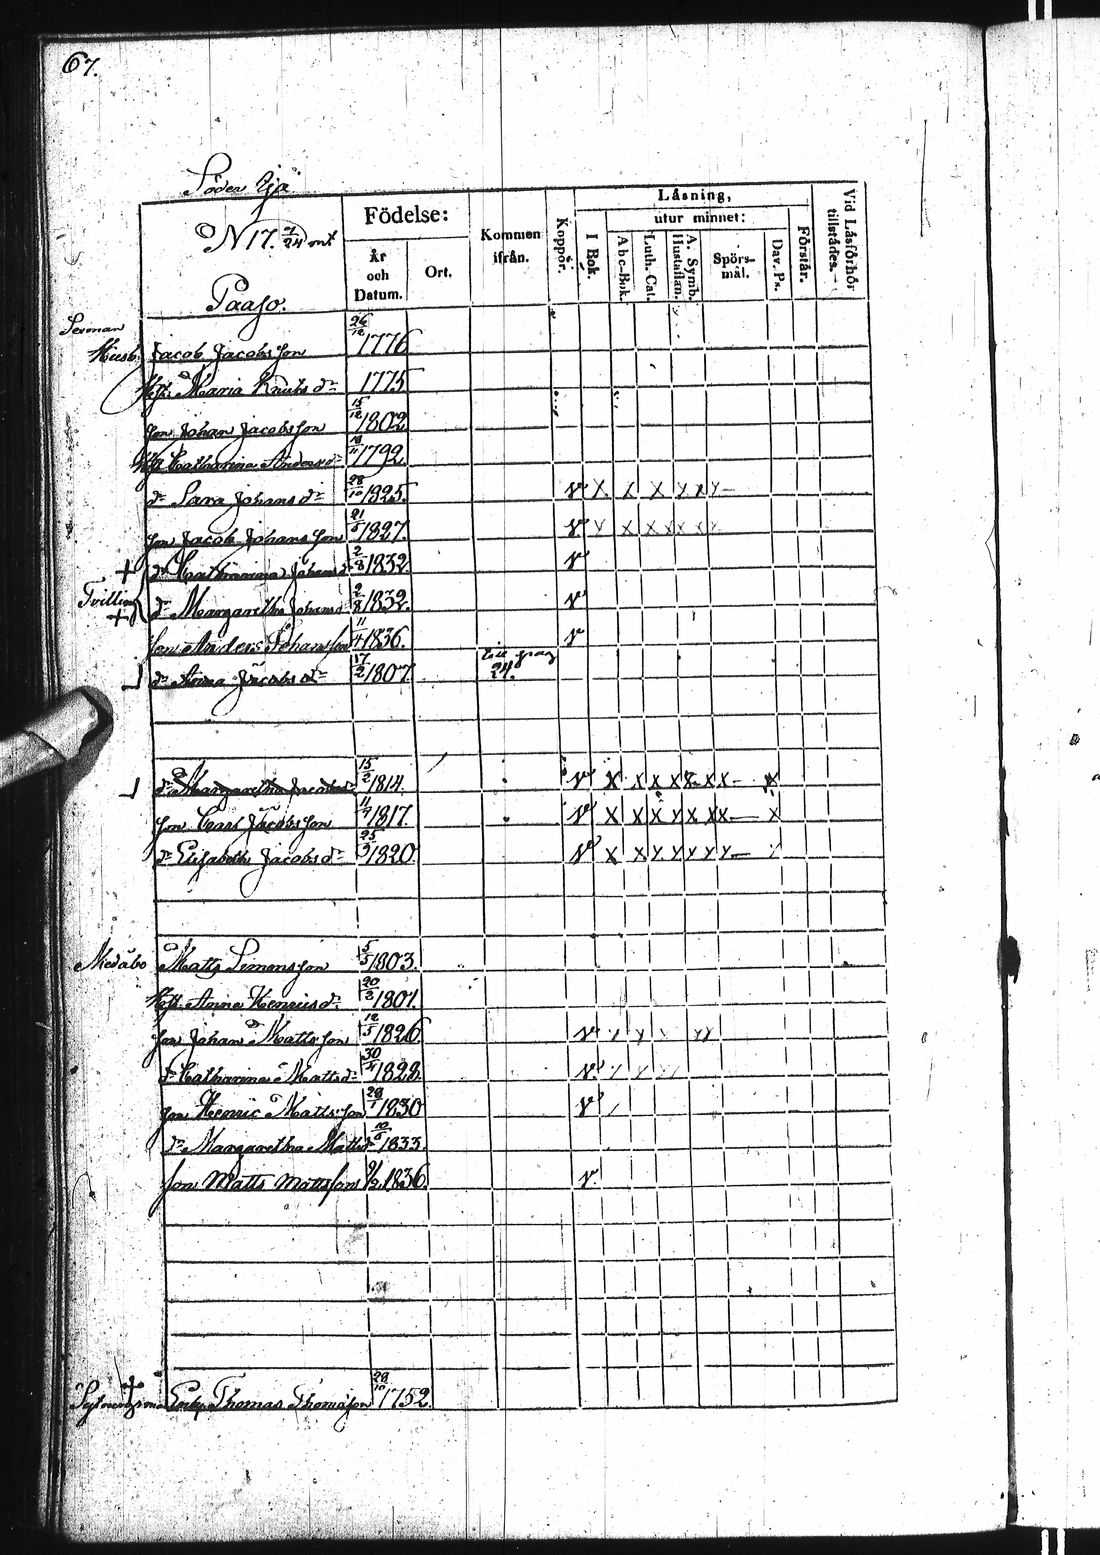 67.
Söder
N 17. 7/24 mt
Paaso.
Födelse:
År och Datum.
Ort.
Kommen ifrån.
Koppor.
Läsning,
I Bok.
utur minnet:
Abc-Bok.
Luth. Cat.
A. Symb. Hustaflan.
Spörs-mål.
Dav. Ps.
Förstår.
Vid Läsförhör tillstädes.
Husb. Jacob Jacobsson 26/12 1776
Hust. Maria Knutsdr 1775
son Johan Jacobsson 15/12 1802
Hust. Catharina Andersdr 1792
dr Sara Johansdr 28/10 1825. v X X X X X X –
son Jacob Johansson 21/5 1827. v X X X X X X X
+ dr Catharina Johansd 2/8 1832. v
Tvilling + dr Margaretha Johansd 2/8 1832. v
son Anders Johansson 11/4 1836. v
dr Anna Jacobsdr 17/2 1807 pag 24.
dr Margaretha Jacobsdr 15/2 1814. v X X X X X X X – X
son Carl Jacobsson 1817. v X X X X X X X – X
dr Elisabeth Jacobsdr 1820 v X X X X X X X –
Medåbo Matts Simonsson 5/5 1803.
Hust. Anna Henricsdr 20/2 1801.
son Johan Mattsson 12/5 1826. v
dr Catharina Mattsdr 30/4 1828. v
son Henric Mattsson 28/1 1830 v
dr Margaretha Mattsdr 10/5 1833.
son Matts Mattsson 9/2 1836. v.
+ Thomas Thomasson 28/10 1752.